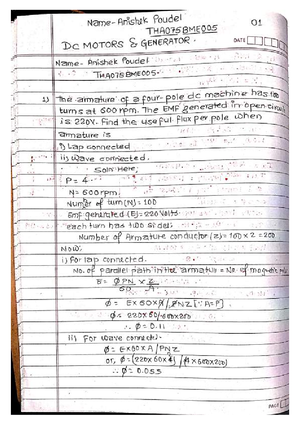 Name- Anishek Poudel
THA075BME005
01
DC MOTORS & GENERATOR.
DATE
Name- Anishek Poudel
THA075BME005.
1) The armature of a four-pole dc machine has 100
turns at 600 rpm. The EMF generated in open circuit
is 220V. Find the useful flux per pole when
armature is
i) Lap connected
ii) Wave connected.
Soln Here,
P = 4
N = 600 rpm
Number of turn (N) = 100
Emf generated (E) = 220 Volts
each turn has two sides
Number of Armature conductor (Z) = 100 x 2 = 200
Now,
i) for lap connected.
No. of parallel path in the armature = No. of magnetic
E = ØPN x Z
60 A
Ø = E x 60 x A / PNZ [∵ A = P]
Ø = 220 x 60 / 600 x 200
∴ Ø = 0.11
ii) For wave connected-
Ø = E x 60 x A / PNZ
or, Ø = (220 x 60 x 2) / (4 x 600 x 200)
∴ Ø = 0.055
PAGE